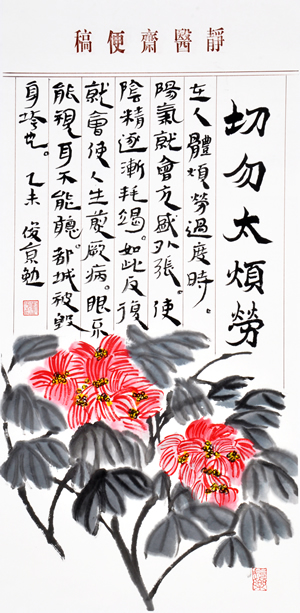 靜醫齋便稿
切勿太煩勞
在人體煩勞過度時。
陽氣就會亢盛外張。使
陰精逐漸耗竭。如此反復
就會使人生煎厥病。眼不
能視耳不能聽。都城被毀
身垮也。乙未 俊